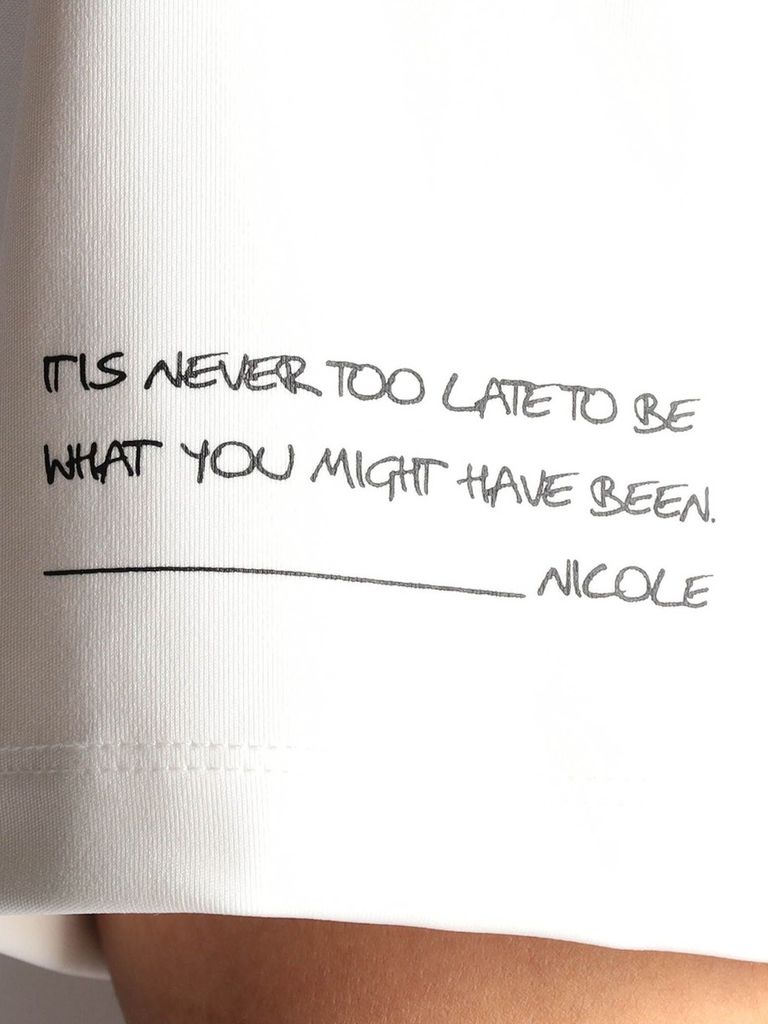 IT IS NEVER TOO LATE TO BE
WHAT YOU MIGHT HAVE BEEN.
NICOLE